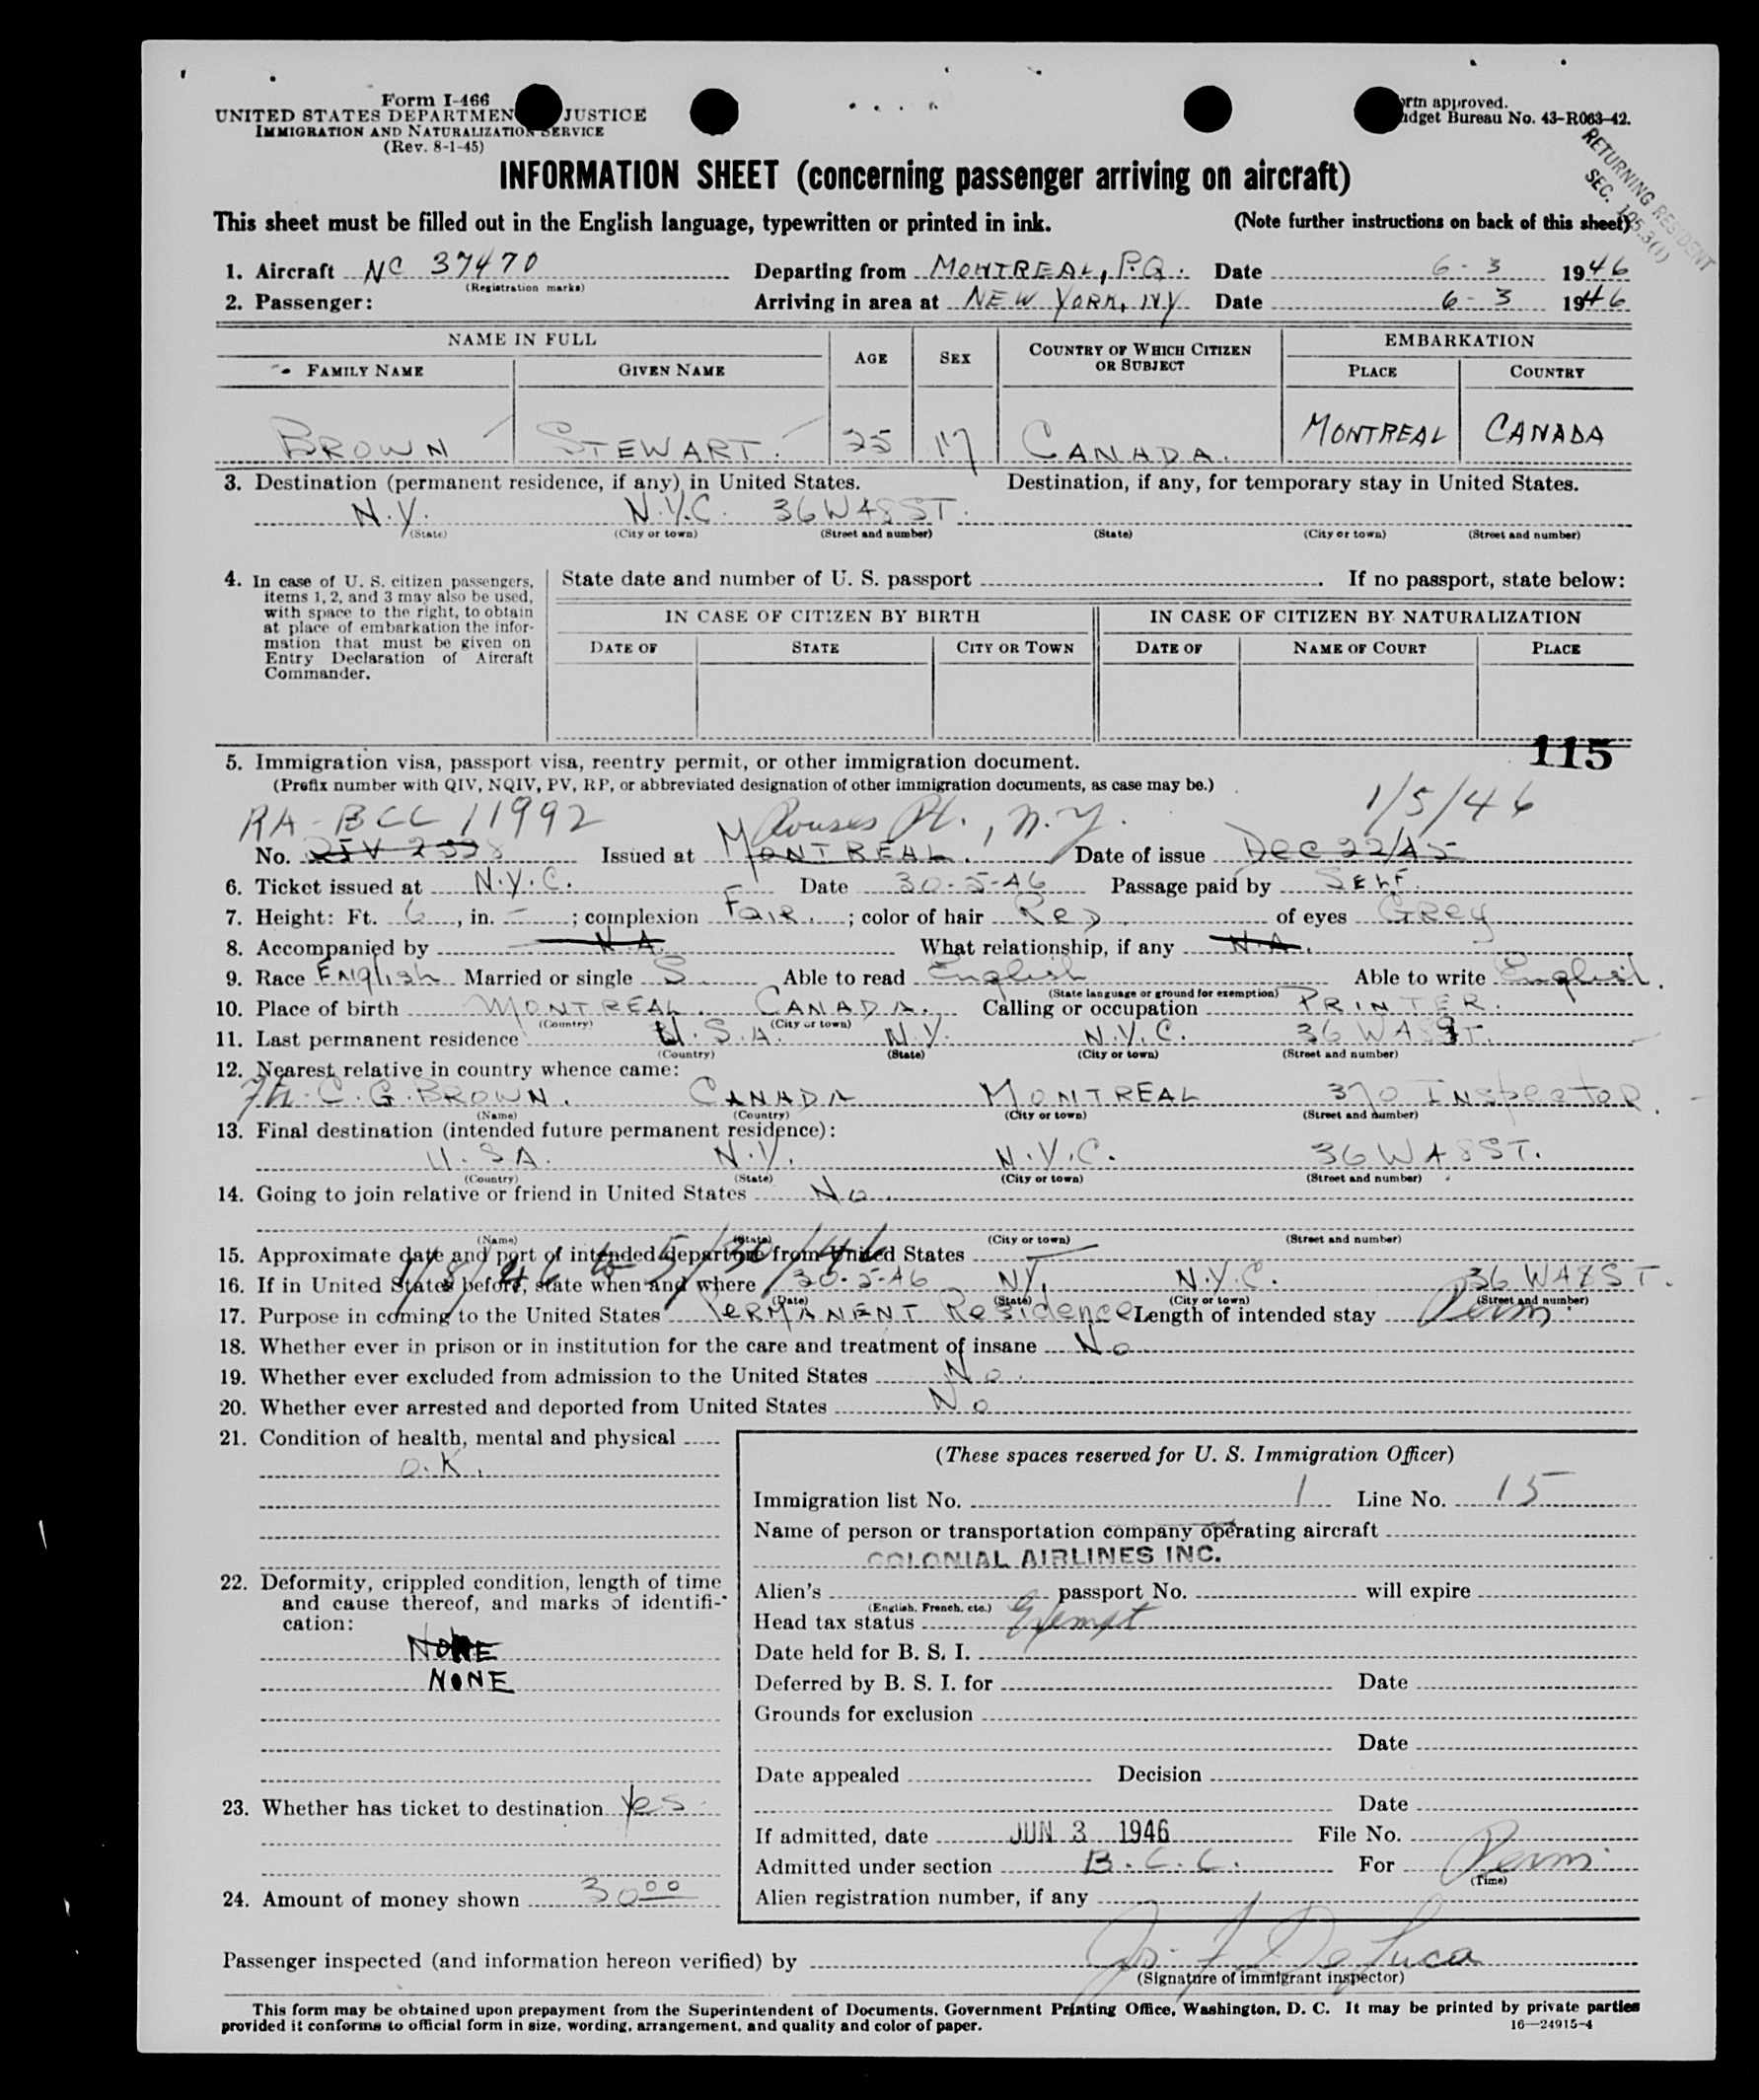 Form I-466
UNITED STATES DEPARTMEN JUSTICE
IMMIGRATION AND NATURALIZATION SERVICE
(Rev. 8-1-45)
orm approved.
udget Bureau No. 43-R063-42.
RETURNING RESIDENT
SEC. 175.3(1)
INFORMATION SHEET (concerning passenger arriving on aircraft)
This sheet must be filled out in the English language, typewritten or printed in ink. (Note further instructions on back of this sheet)
1. Aircraft NC 37470 Departing from MONTREAL, P.Q. Date 6-3 1946
(Registration marks)
2. Passenger: Arriving in area at NEW YORK, NY Date 6-3 1946
NAME IN FULL AGE SEX COUNTRY OF WHICH CITIZEN OR SUBJECT EMBARKATION
FAMILY NAME GIVEN NAME PLACE COUNTRY
BROWN STEWART. 25 M CANADA. MONTREAL CANADA
3. Destination (permanent residence, if any) in United States. Destination, if any, for temporary stay in United States.
N.Y. N.Y.C. 36 W 48 ST.
(State) (City or town) (Street and number) (State) (City or town) (Street and number)
4. In case of U. S. citizen passengers, items 1, 2, and 3 may also be used, with space to the right, to obtain at place of embarkation the information that must be given on Entry Declaration of Aircraft Commander.
State date and number of U. S. passport . If no passport, state below:
IN CASE OF CITIZEN BY BIRTH IN CASE OF CITIZEN BY NATURALIZATION
DATE OF STATE CITY OR TOWN DATE OF NAME OF COURT PLACE
115
5. Immigration visa, passport visa, reentry permit, or other immigration document.
(Prefix number with QIV, NQIV, PV, RP, or abbreviated designation of other immigration documents, as case may be.)
RA-BCC 11992 Rouses Pt., N.Y. 1/5/46
No. Issued at MONTREAL. Date of issue DEC 22/45
6. Ticket issued at N.Y.C. Date 30-5-46 Passage paid by SELF.
7. Height: Ft. 6, in. - ; complexion FAIR. ; color of hair RED of eyes GREY
8. Accompanied by N.A. What relationship, if any N.A.
9. Race ENGLISH Married or single S. Able to read English Able to write English.
(State language or ground for exemption)
10. Place of birth MONTREAL. CANADA. Calling or occupation PRINTER.
(Country) (City or town)
11. Last permanent residence U.S.A. N.Y. N.Y.C. 36 W 48 ST.
(Country) (State) (City or town) (Street and number)
12. Nearest relative in country whence came:
C.G. BROWN. CANADA MONTREAL 370 INSPECTOR.
(Name) (Country) (City or town) (Street and number)
13. Final destination (intended future permanent residence):
U.S.A. N.Y. N.Y.C. 36 W 48 ST.
(Country) (State) (City or town) (Street and number)
14. Going to join relative or friend in United States No.
(Name) (State) (City or town) (Street and number)
15. Approximate date and port of intended departure from United States —
1/8/46 to 5/30/46
16. If in United States before, state when and where 30-5-46 NY. N.Y.C. 36 W 48 ST.
(Date) (State) (City or town) (Street and number)
17. Purpose in coming to the United States PERMANENT Residence Length of intended stay Perm.
18. Whether ever in prison or in institution for the care and treatment of insane No
19. Whether ever excluded from admission to the United States No.
20. Whether ever arrested and deported from United States No
21. Condition of health, mental and physical
O.K.
22. Deformity, crippled condition, length of time and cause thereof, and marks of identification:
NONE
NONE
23. Whether has ticket to destination Yes
24. Amount of money shown 30 00
(These spaces reserved for U. S. Immigration Officer)
Immigration list No. 1 Line No. 15
Name of person or transportation company operating aircraft
COLONIAL AIRLINES INC.
Alien's passport No. will expire
(English, French, etc.)
Head tax status Exempt
Date held for B. S. I.
Deferred by B. S. I. for Date
Grounds for exclusion
Date
Date appealed Decision
Date
If admitted, date JUN 3 1946 File No.
Admitted under section B.C.C. For Perm.
(Time)
Alien registration number, if any
Passenger inspected (and information hereon verified) by Jos. F. DeLuca
(Signature of immigrant inspector)
This form may be obtained upon prepayment from the Superintendent of Documents, Government Printing Office, Washington, D. C. It may be printed by private parties
provided it conforms to official form in size, wording, arrangement, and quality and color of paper. 16—24915-4